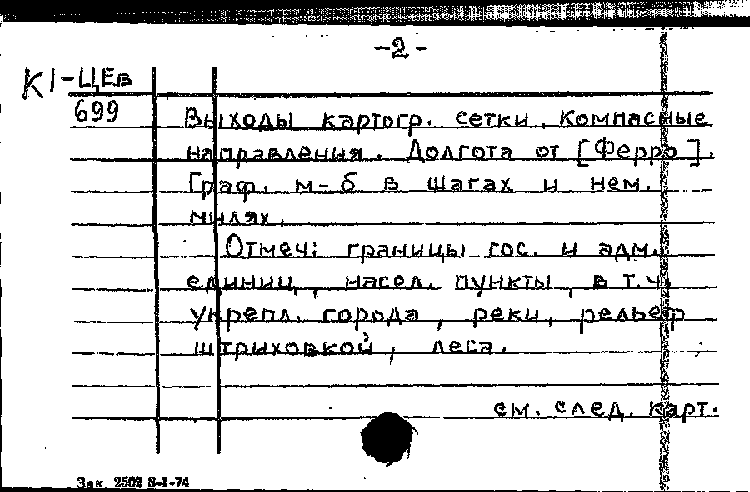 -2-
К1-ЦЕв
699
Выходы картогр. сетки. Компасные
направления. Долгота от [Ферро].
Граф. м-б в шагах и нем.
милях.
Отмеч: границы гос. и адм.
единиц, насел. пункты, в т.ч.
укрепл. города, реки, рельеф
штриховкой, леса.
см. след. карт.
Зак. 2502 8-I-74